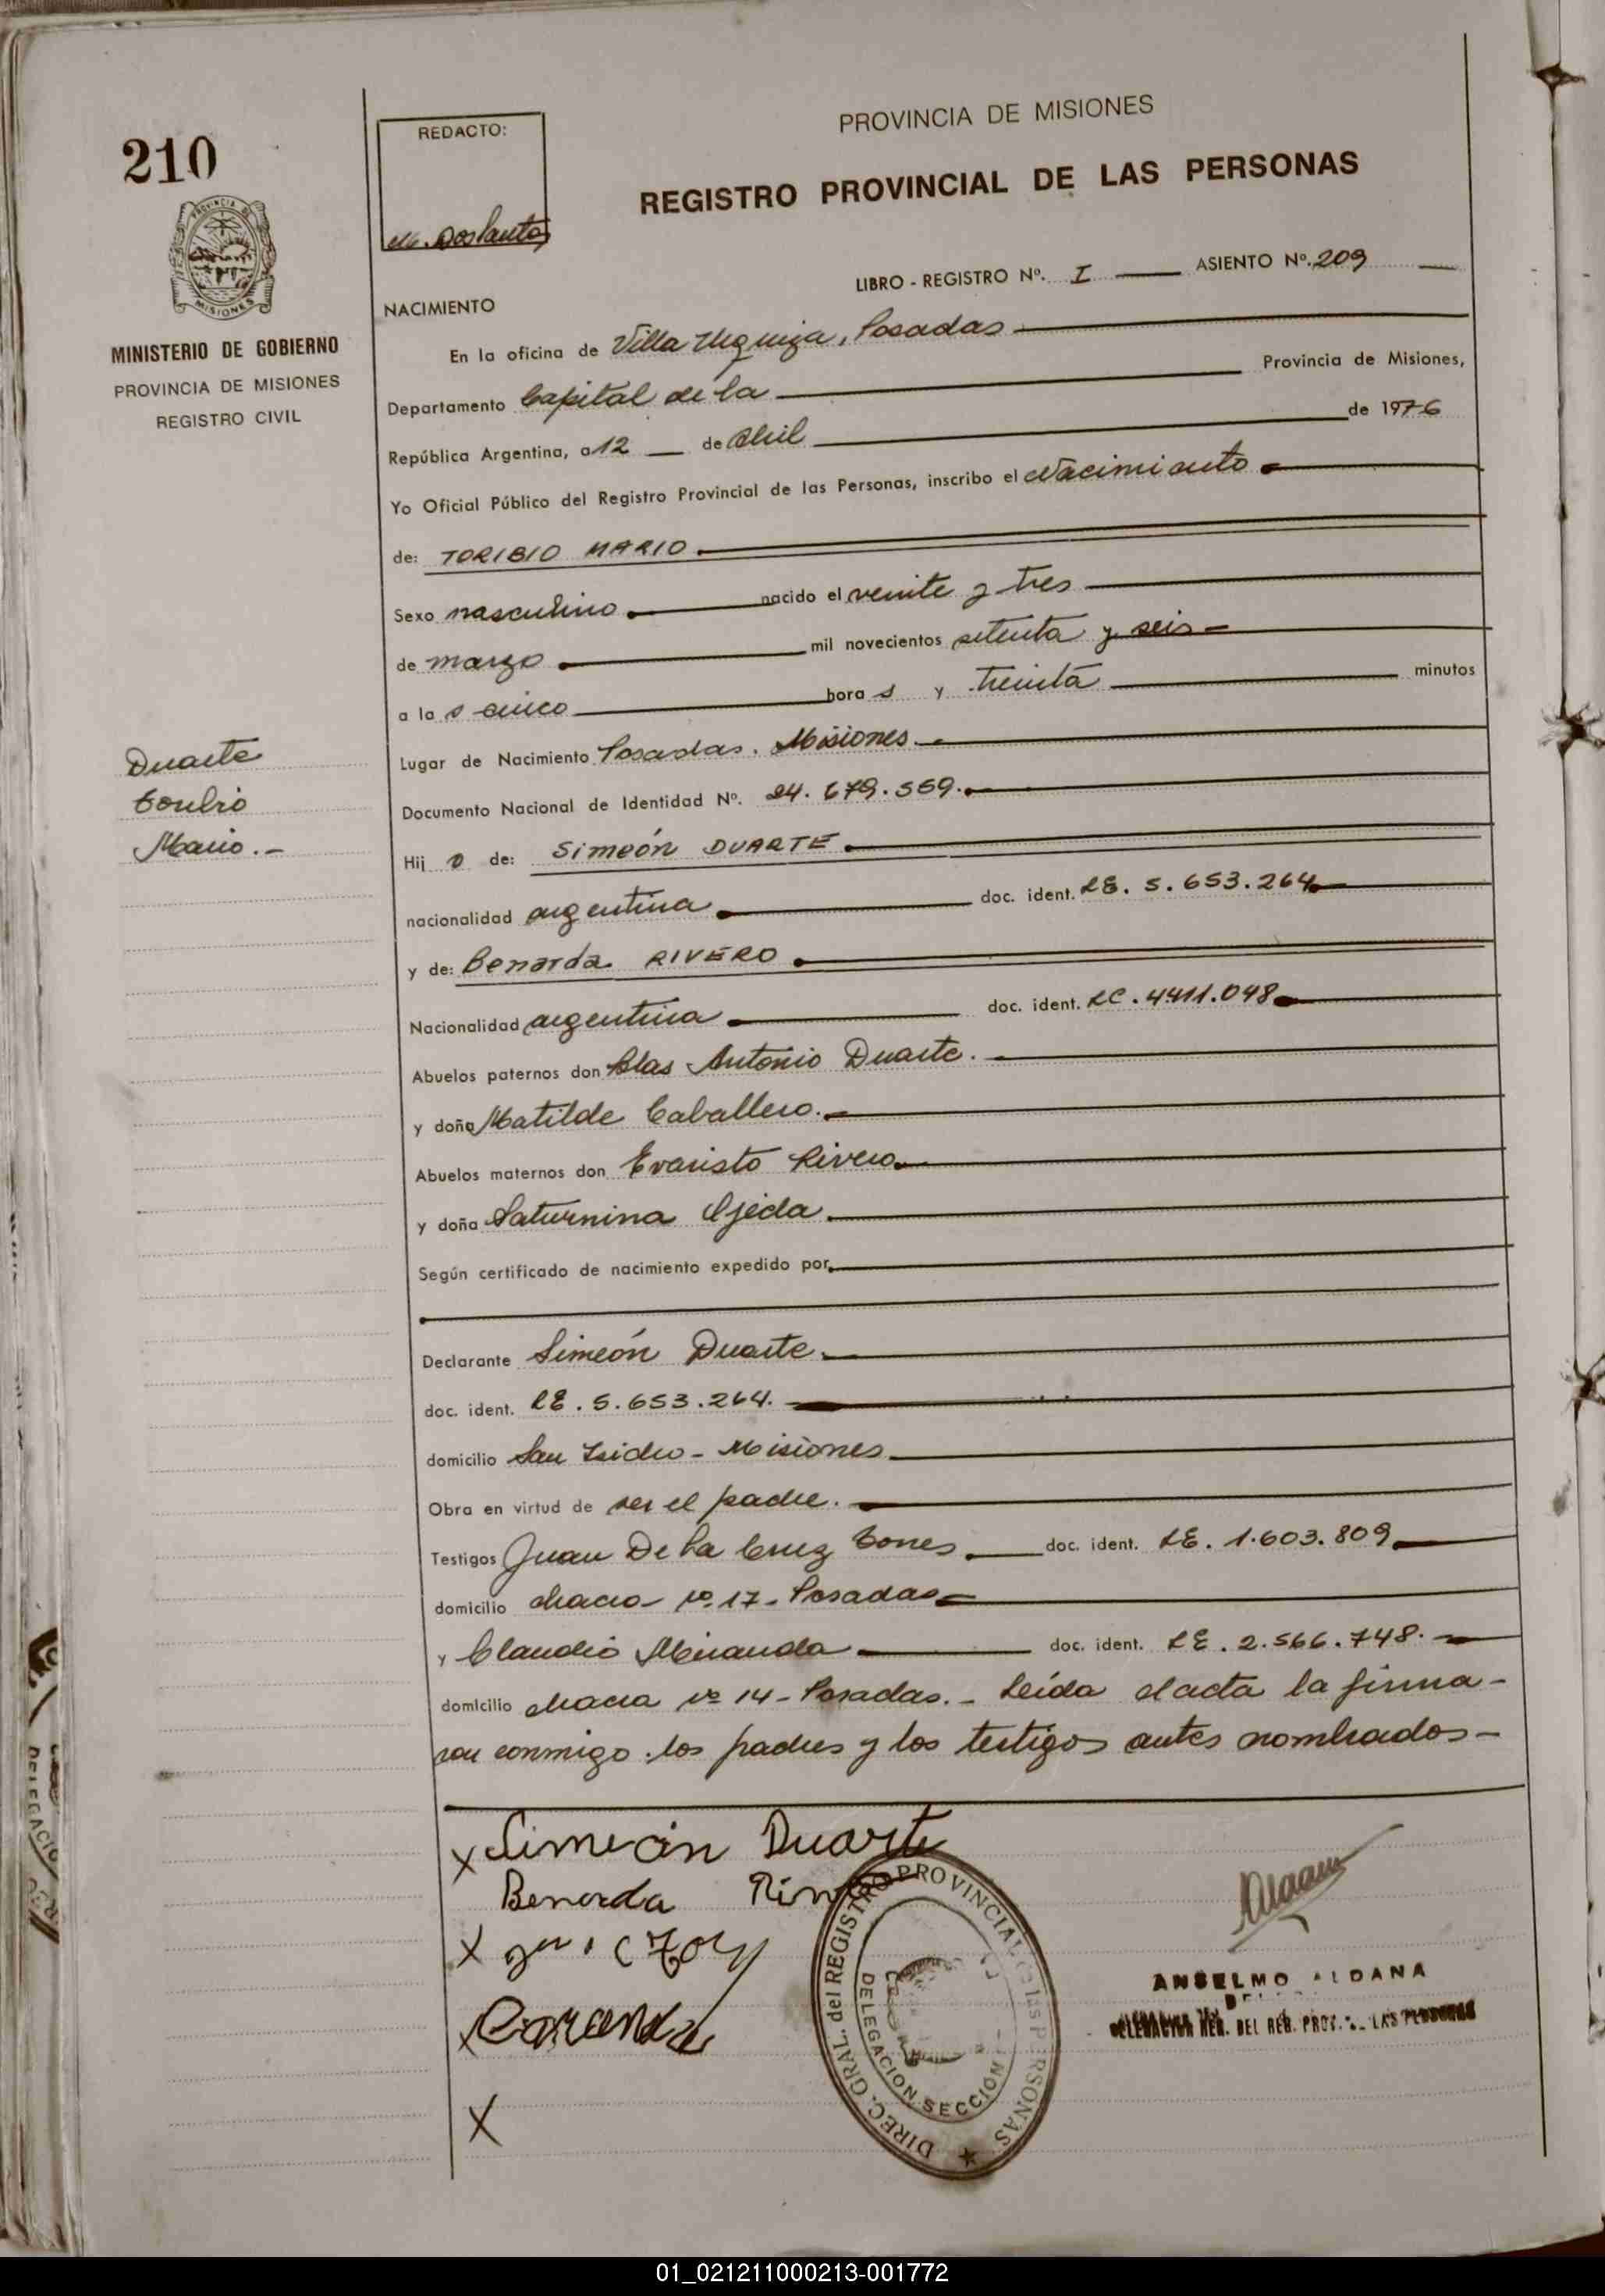 210
REDACTO:
PROVINCIA DE MISIONES
REGISTRO PROVINCIAL DE LAS PERSONAS
PROVINCIA DE
MISIONES
MINISTERIO DE GOBIERNO
PROVINCIA DE MISIONES
REGISTRO CIVIL
LIBRO - REGISTRO Nº. I ASIENTO Nº. 209
NACIMIENTO
En la oficina de Villa Urquiza, Posadas
Departamento Capital de la Provincia de Misiones,
República Argentina, a 12 de Abril de 1976
Yo Oficial Público del Registro Provincial de las Personas, inscribo el Nacimiento
de: TORIBIO MARIO
Sexo masculino nacido el veinte y tres
de marzo mil novecientos setenta y seis
a la s cinco hora s y treinta minutos
Lugar de Nacimiento Posadas. Misiones.
Documento Nacional de Identidad Nº. 24.679.559.
Duarte
Toribio
Mario.-
Hij o de: Simeón DUARTE
nacionalidad argentina doc. ident. LE. 5.653.264
y de: Benarda RIVERO
Nacionalidad argentina doc. ident. LC. 4.411.048
Abuelos paternos don Blas Antonio Duarte.
y doña Matilde Caballero.
Abuelos maternos don Evaristo Rivero
y doña Saturnina Ojeda
Según certificado de nacimiento expedido por
Declarante Simeón Duarte.
doc. ident. LE. 5.653.264.
domicilio San Isidro - Misiones
Obra en virtud de ser el padre.
Testigos Juan De La Cruz Torres doc. ident. LE. 1.603.809
domicilio chacra - nº 17 - Posadas
y Claudio Miranda doc. ident. LE. 2.566.748.
domicilio chacra nº 14 - Posadas. - Leída el acta la firma-
ron conmigo: los padres y los testigos antes nombrados -
X Simeón Duarte
Benarda
X
X
X
DIREC. GRAL. del REGISTRO PROVINCIAL de las PERSONAS
DELEGACION SECCION
ANSELMO ALDANA
DEL REG. PROV. LAS PERSONAS
01_021211000213-001772